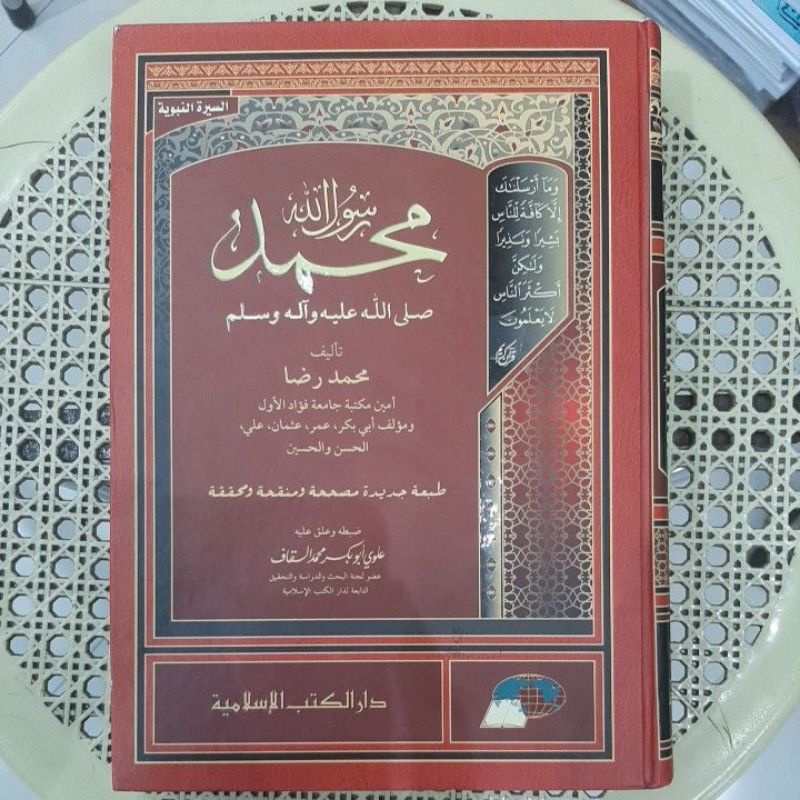 السيرة النبوية
محمد
رسول الله
صلى الله عليه وآله وسلم
وَمَا أَرْسَلْنَاكَ
إِلَّا كَافَّةً لِلنَّاسِ
بَشِيرًا وَنَذِيرًا
وَلَكِنَّ
أَكْثَرَ النَّاسِ
لَا يَعْلَمُونَ
قرآن كريم
تأليف
محمد رضا
أمين مكتبة جامعة فؤاد الأول
ومؤلف أبي بكر، عمر، عثمان، علي،
الحسن والحسين
طبعة جديدة مصححة ومنقحة ومحققة
ضبطه وعلق عليه
علوي أبو بكر محمد السقاف
عضو لجنة البحث والدراسة والتحقيق
التابعة لدار الكتب الإسلامية
دار الكتب الإسلامية